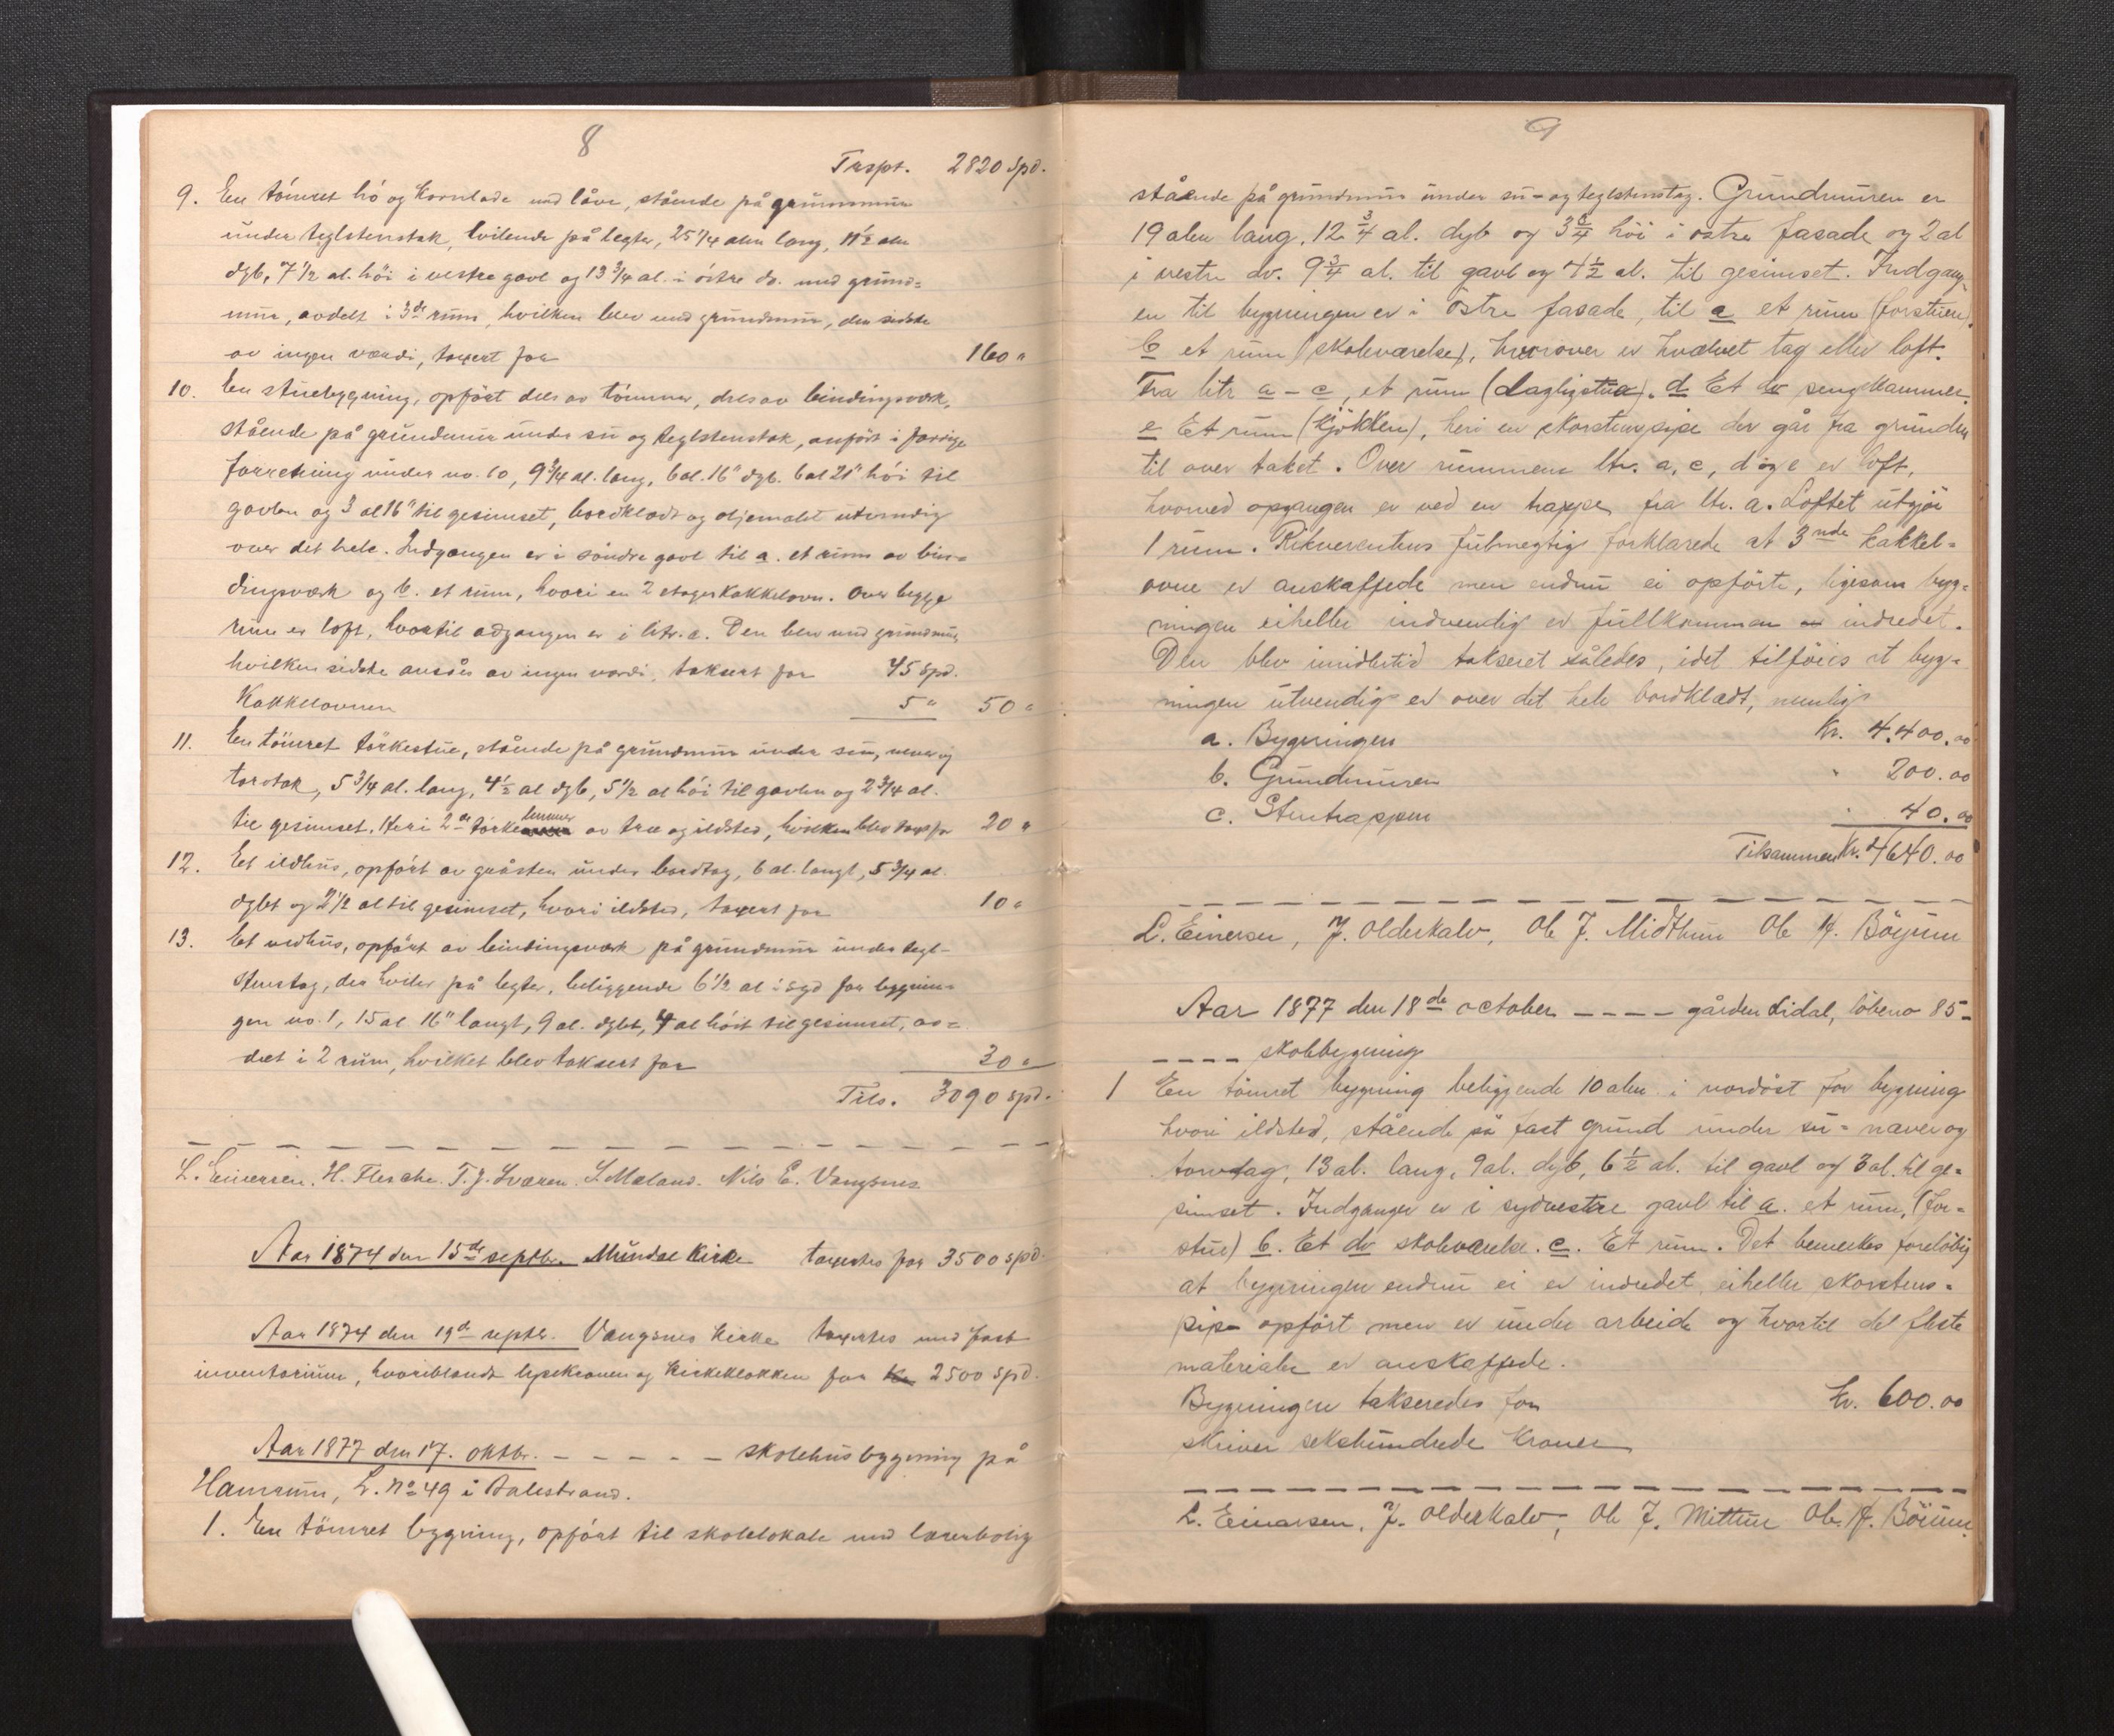 8
Trspt. 2820 Spd.
9. En tömret hö og Kornlade med låve, stående på grunnmur
under teglstenstak, hvilende på legter, 25 1/4 alen lang, 11 1/2 alen
dyb, 7 1/2 al. höi i vestre gavl og 13 3/4 al. i östre do. med grund=
mur, avdelt i 3de rum, hvilken blev med grundmur, den sidste
av ingen værdi, taxert for 160 "
10. En stuebygning, opfört dels av tömmer, dels av bindingsverk,
stående på grundmur under su og teglstenstak, anfört i forrige
forretning under no. 10, 9 3/4 al. lang, 6 al. 16" dyb. 6 al 21" höi til
gavlen og 3 al 16" til gesimset, bordklædt og oljemalet utvendig
over det hele. Indgangen er i söndre gavl til a. et rum av bin=
dingsværk og b. et rum, hvori en 2 etages Kakkelovn. Over begge
rum er loft, hvortil adgangen er i litr. a. Den blev med grundmur,
hvilken sidste ansåes av ingen værdi, taksert for 45 spd.
Kakkelovnen 5 " 50 "
11. En tömret törkestue, stående på grundmur under su, never og
torvtak, 5 3/4 al. lang, 4 1/2 al dyb, 5 1/2 al höi til gavlen og 2 3/4 al.
til gesimset. Heri 2de törke lemmer av træ og ildsted, hvilken blev taxt for 20 "
12. Et ildhus, opfört av gråsten under bordtag, 6 al. langt, 5 3/4 al.
dybt og 2 1/2 al til gesimset, hvori ildsted, taxert for 10 "
13. Et vedhus, opfört av bindingsverk på grundmur under tegl-
stenstag, der hviler på legter, beliggende 6 1/2 al i syd for bygnin=
gen no. 1, 15 al 16" langt, 9 al. dybt, 4 al höit til gesimset, av=
delt i 2 rum, hvilket blev taksert for 30 "
Tils. 3090 spd.
L. Einersen. H. Flesche. T. J. Sværen. S. Mæland. Nils E. Vangsnes
Aar 1874 den 15de septbr. Mundal Kirke taxertes for 3500 spd.
Aar 1874 den 19de septbr. Vangsnes Kirke taxertes med fast
inventarium, hvoriblandt lysekronen og Kirkeklokken for Kr 2500 spd.
Aar 1877 den 17. oktbr. - - - - - skolehusbygning på
Hamrum, L. No 49 i Balestrand.
1. En tömret bygning, opfört til skolelokale med lærerbolig
9
stående på grundmur under su- og teglstenstag. Grundmuren er
19 alen lang, 12 3/4 al. dyb og 3 3/4 höi i östre fasade og 2 al
i vestre do. 9 3/4 al. til gavl og 4 1/2 al. til gesimset. Indgang-
en til bygningen er i östre fasade, til a et rum (forstuen)
b et rum (skoleværelse), hvorover er hvælvet tag eller loft.
Fra litr a - c, et rum (Dagligstua). d Et do sengkammer.
e Et rum (Kjökken), heri en skorstenspipe der går fra grunden
til over taket. Over rummene ltr. a, c, d og e er loft,
hvorved opgangen er ved en trappe fra ltr. a. Loftet utgjör
1 rum. Rekverentens fulmegtig forklarede at 3nde kakkel=
ovne er anskaffede men endnu ei opförte, ligesom byg=
ningen eiheller indvendig er fullkommen indredet.
Den blev imidlertid takseret således, idet tilföies at byg=
ningen utvendig er over det hele bordklædt, nemlig
a. Bygningen Kr. 4.400.00
b. Grundmuren " 200.00
c. Stentrappen " 40.00
Tilsammen Kr. 4640.00
L. Einersen, J. Olderkalv, Ole J. Midthun Ole H. Böyum
Aar 1877 den 18de october - - - - gården Lidal, löbeno 85-
- - - - skolebygning
1 En tömret bygning beliggende 10 alen i nordöst for bygning
hvori ildsted, stående på fast grund under su- never og
torvtag, 13 al. lang, 9 al. dyb, 6 1/2 al. til gavl og 3 al. til ge=
simset. Indgangen er i sydvestre gavl til a. et rum, (for=
stue) b. Et do skoleværelse. c. Et rum. Det bemerkes forelöbig
at bygningen endnu ei er indredet, eiheller skorstens=
pipe opfört men er under arbeide og hvortil det fleste
materialer er anskaffede.
Bygningen takseredes for kr. 600.00
skriver sekshundrede Kroner
L. Einersen, J. Olderkalv, Ole J. Mittun Ole H. Böium.